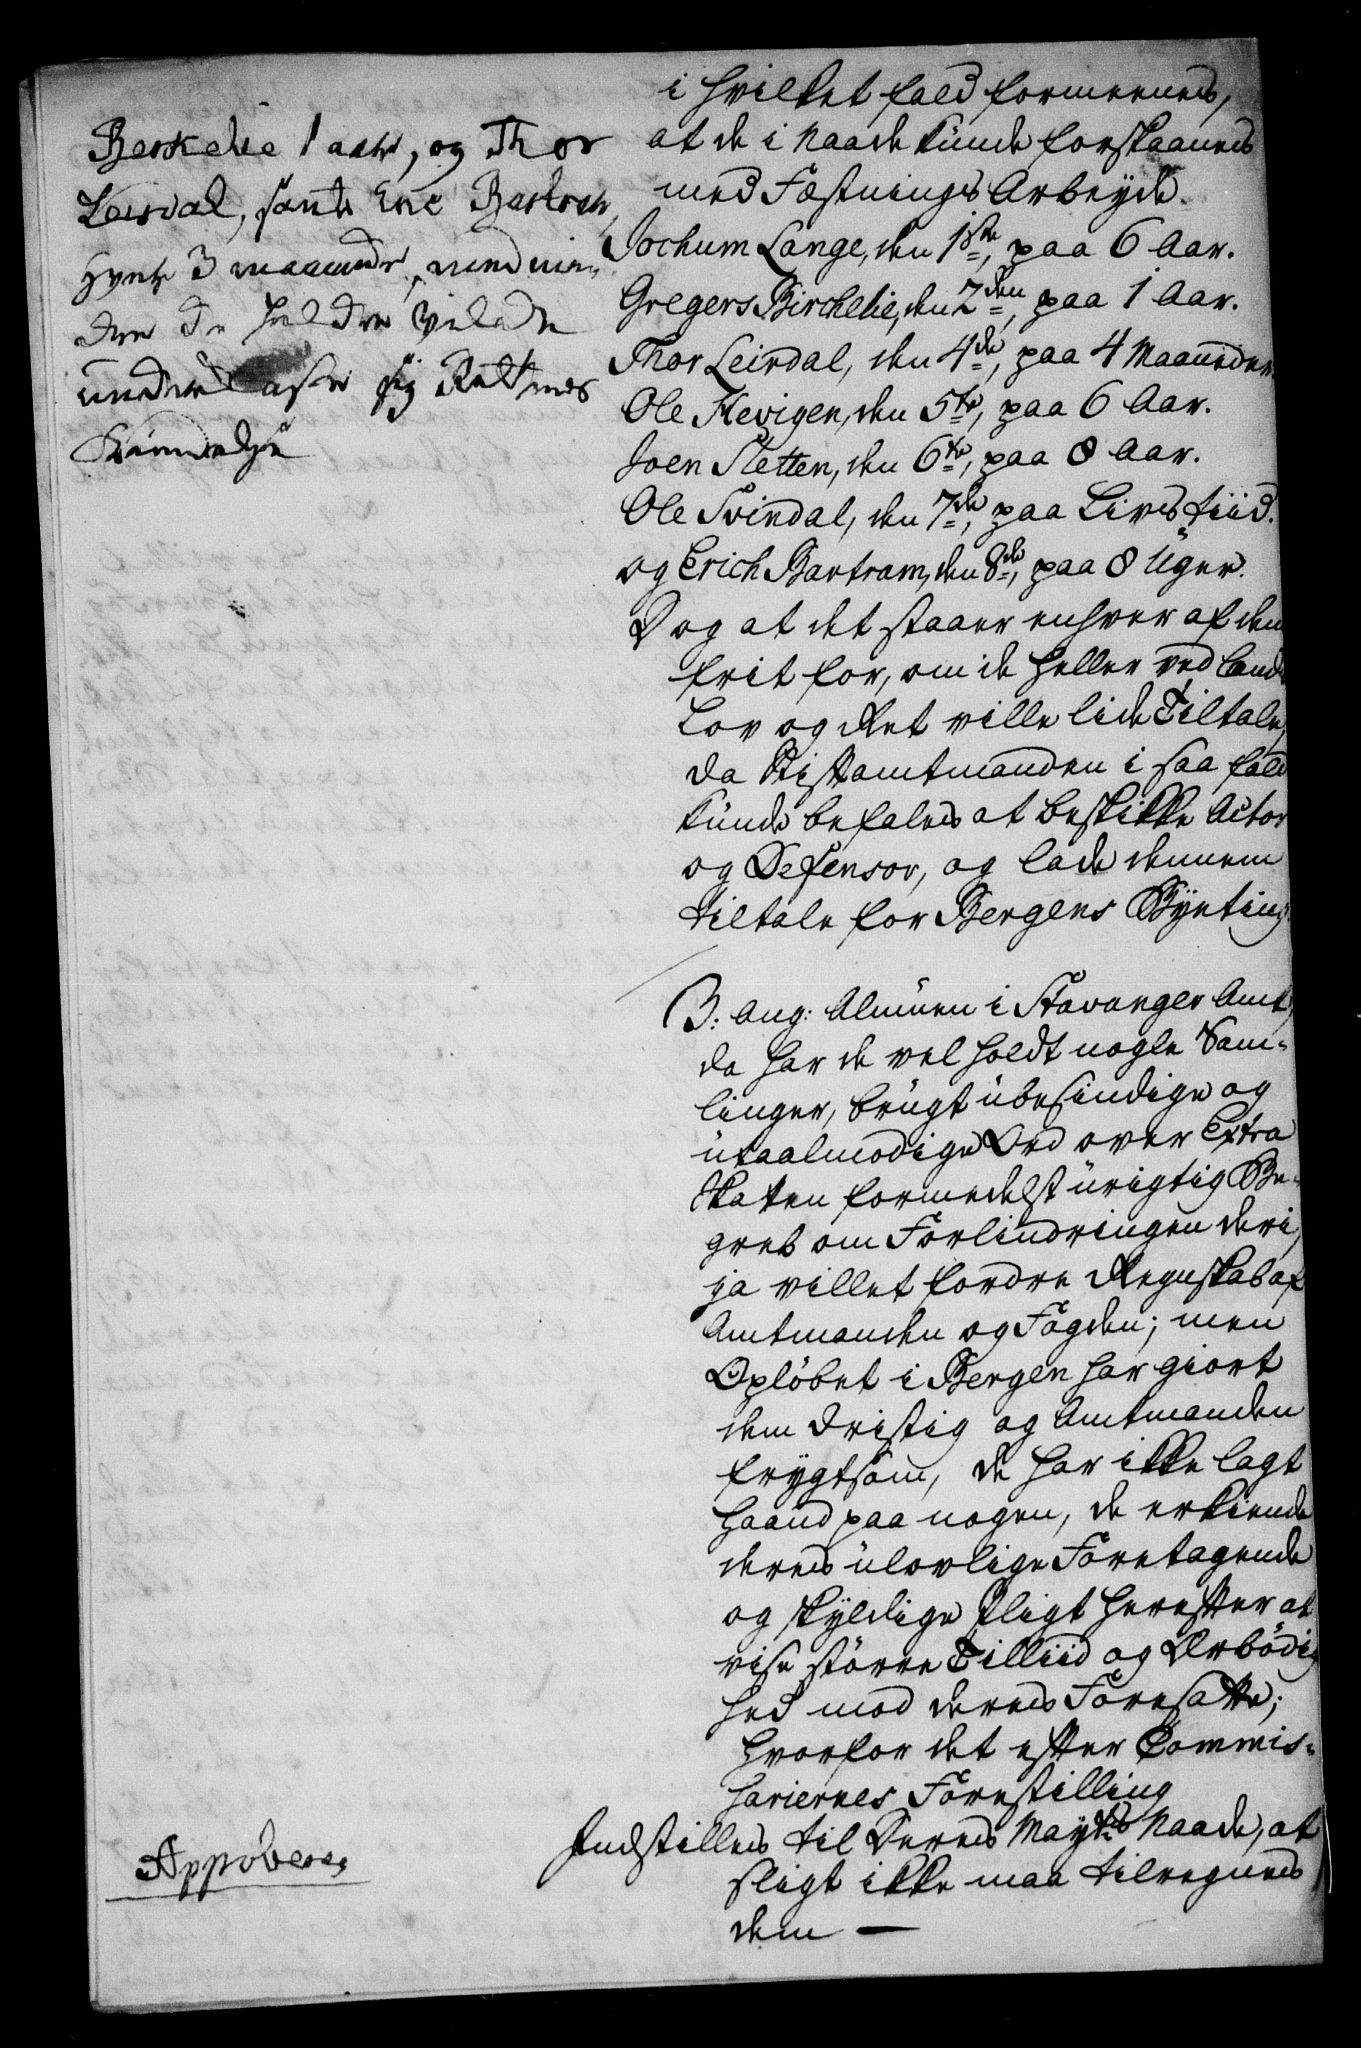 Berkelie 1 aahr, og Thor
Leirdal, samt Eric Bartram,
hver 3 maaneder, med min
dre de heldre vil
under sig Rettens
Kiendelse
Approberes
i hvilket fald formeenes,
at de i Naade kunde forskaanes
med Fæstnings Arbeyde.
Jochum Lange, den 1ste, paa 6 Aar.
Gregers Birchelie, den 2den, paa 1 Aar.
Thor Leirdal, den 4de, paa 4 Maaneder
Ole Hevigen, den 5te, paa 6 Aar.
Joen Sletten, den 6te, paa 8 Aar.
Ole Svindal, den 7de, paa Livs tiid.
og Erich Bartram, den 8de, paa 8 Uger.
Dog at det staaer enhver af dem
frit for, om de heller ved Lands
Lov og Ret ville lide Tiltale,
da Stiftamtmanden i saa fald
kunde befales at beskikke Actor
og Defensor, og lade dennem
tiltale for Bergens Byeting
3: Ang: Almuen i Stavanger Amt,
da har de vel holdt nogle Sam-
linger, brugt ubesindige og
utaalmodige Ord over Extra
Skatten formedelst urigtig Be-
greb om Forlindringen deri,
ja villet fordre Regnskab af
Amtmanden og Fogden; men
Opløbet i Bergen har giort
dem dristig og Amtmanden
frygtsom, de har ikke lagt
haand paa nogen, de erkiende
deres ulovlige Foretagende
og skyldige Pligt herefter at
vise større Tilliid og Ærbødig
hed mod deres Foresatte;
hvorfor det efter Commis-
sariernes Forestilling
Indstilles til Deres Mayts Naade, at
sligt ikke maa tilregnes
dem —